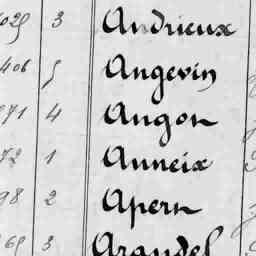 029 3 Andrieux
406 5 Angevin
071 4 Angon
72 1 Anneix
98 2 Apern
69 3 Arandel